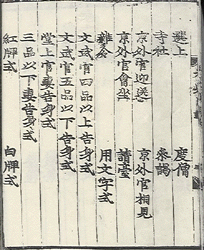 選上 度僧
寺社 參謁
京外官迎送 京外官相見
京外官會坐 請臺
雜令 用文字式
文武官四品以上告身式
文武官五品以下告身式
堂上官妻告身式
三品以下妻告身式
紅牌式 白牌式